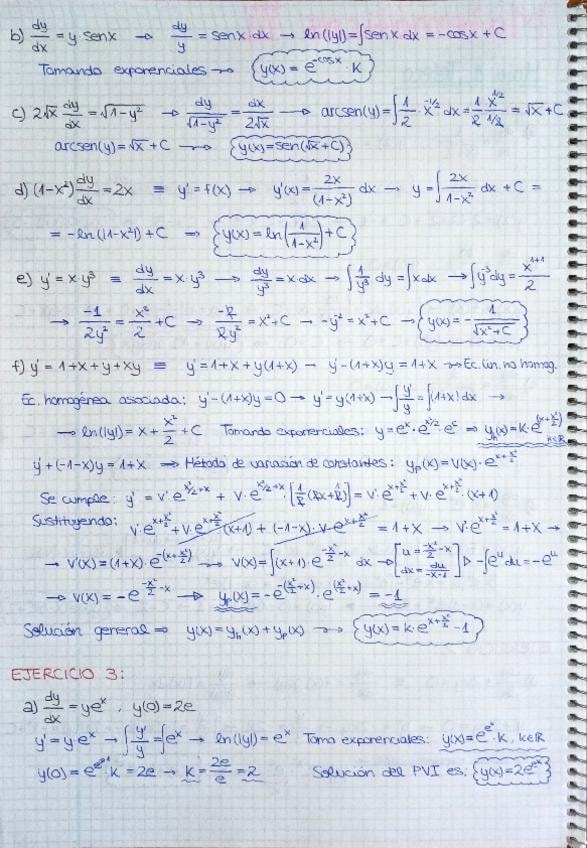 b) dy/dx = y·senx → dy/y = senx·dx → ln(|y|) = ∫senx dx = -cosx + C
Tomando exponenciales → y(x) = e^(-cosx)·K
c) 2√x dy/dx = √(1-y²) → dy/√(1-y²) = dx/(2√x) → arcsen(y) = ∫ 1/2 x^(-1/2) dx = 1/2 x^(1/2)/(1/2) = √x + C
arcsen(y) = √x + C → y(x) = sen(√x + C)
d) (1-x²) dy/dx = 2x ≡ y' = f(x) → y'(x) = 2x/(1-x²) dx → y = ∫ 2x/(1-x²) dx + C =
= -ln(|1-x²|) + C ⇒ y(x) = ln(1/(1-x²)) + C
e) y' = x·y³ ≡ dy/dx = x·y³ → dy/y³ = x·dx → ∫ 1/y³ dy = ∫x dx → ∫y⁻³dy = x^(1+1)/2
→ -1/(2y²) = x²/2 + C → -2/(2y²) = x² + C → -y² = x² + C → y(x) = - 1/√(x²+C)
f) y' = 1+x+y+xy ≡ y' = 1+x+y(1+x) → y'-(1+x)y = 1+x → Ec. lin. no homog.
Ec. homogénea asociada: y'-(1+x)y = 0 → y' = y(1+x) → ∫ y'/y = ∫(1+x) dx →
→ ln(|y|) = x + x²/2 + C Tomando exponenciales: y = e^x·e^(x²/2)·e^c ⇒ y_h(x) = K·e^(x+x²/2) K∈R
y'+(-1-x)y = 1+x ⇒ Método de variación de constantes: y_p(x) = V(x)·e^(x+x²/2)
Se cumple: y' = v'·e^(x²/2+x) + v·e^(x²/2+x)·[1/2(2x+2)] = v'·e^(x+x²/2) + v·e^(x+x²/2)·(x+1)
Sustituyendo: v'·e^(x+x²/2) + v·e^(x+x²/2)(x+1) + (-1-x)·v·e^(x+x²/2) = 1+x → v'·e^(x+x²/2) = 1+x →
→ v'(x) = (1+x)·e^(-(x+x²/2)) → v(x) = ∫(x+1)·e^(-x²/2-x) dx → [u = -x²/2-x dx = du/(-x-1)] ▷ -∫e^u du = -e^u
→ v(x) = -e^(-x²/2-x) ⇒ y_p(x) = -e^(-(x²/2+x))·e^(x²/2+x) = -1
Solución general ⇒ y(x) = y_h(x) + y_p(x) → y(x) = k·e^(x+x²/2) - 1
EJERCICIO 3:
a) dy/dx = ye^x , y(0) = 2e
y' = ye^x → ∫ y'/y = ∫e^x → ln(|y|) = e^x Tomo exponenciales: y(x) = e^(e^x)·K, K∈R
y(0) = e^(e^0)·K = 2e → K = 2e/e = 2 Solución del PVI es: y(x) = 2e^(e^x)